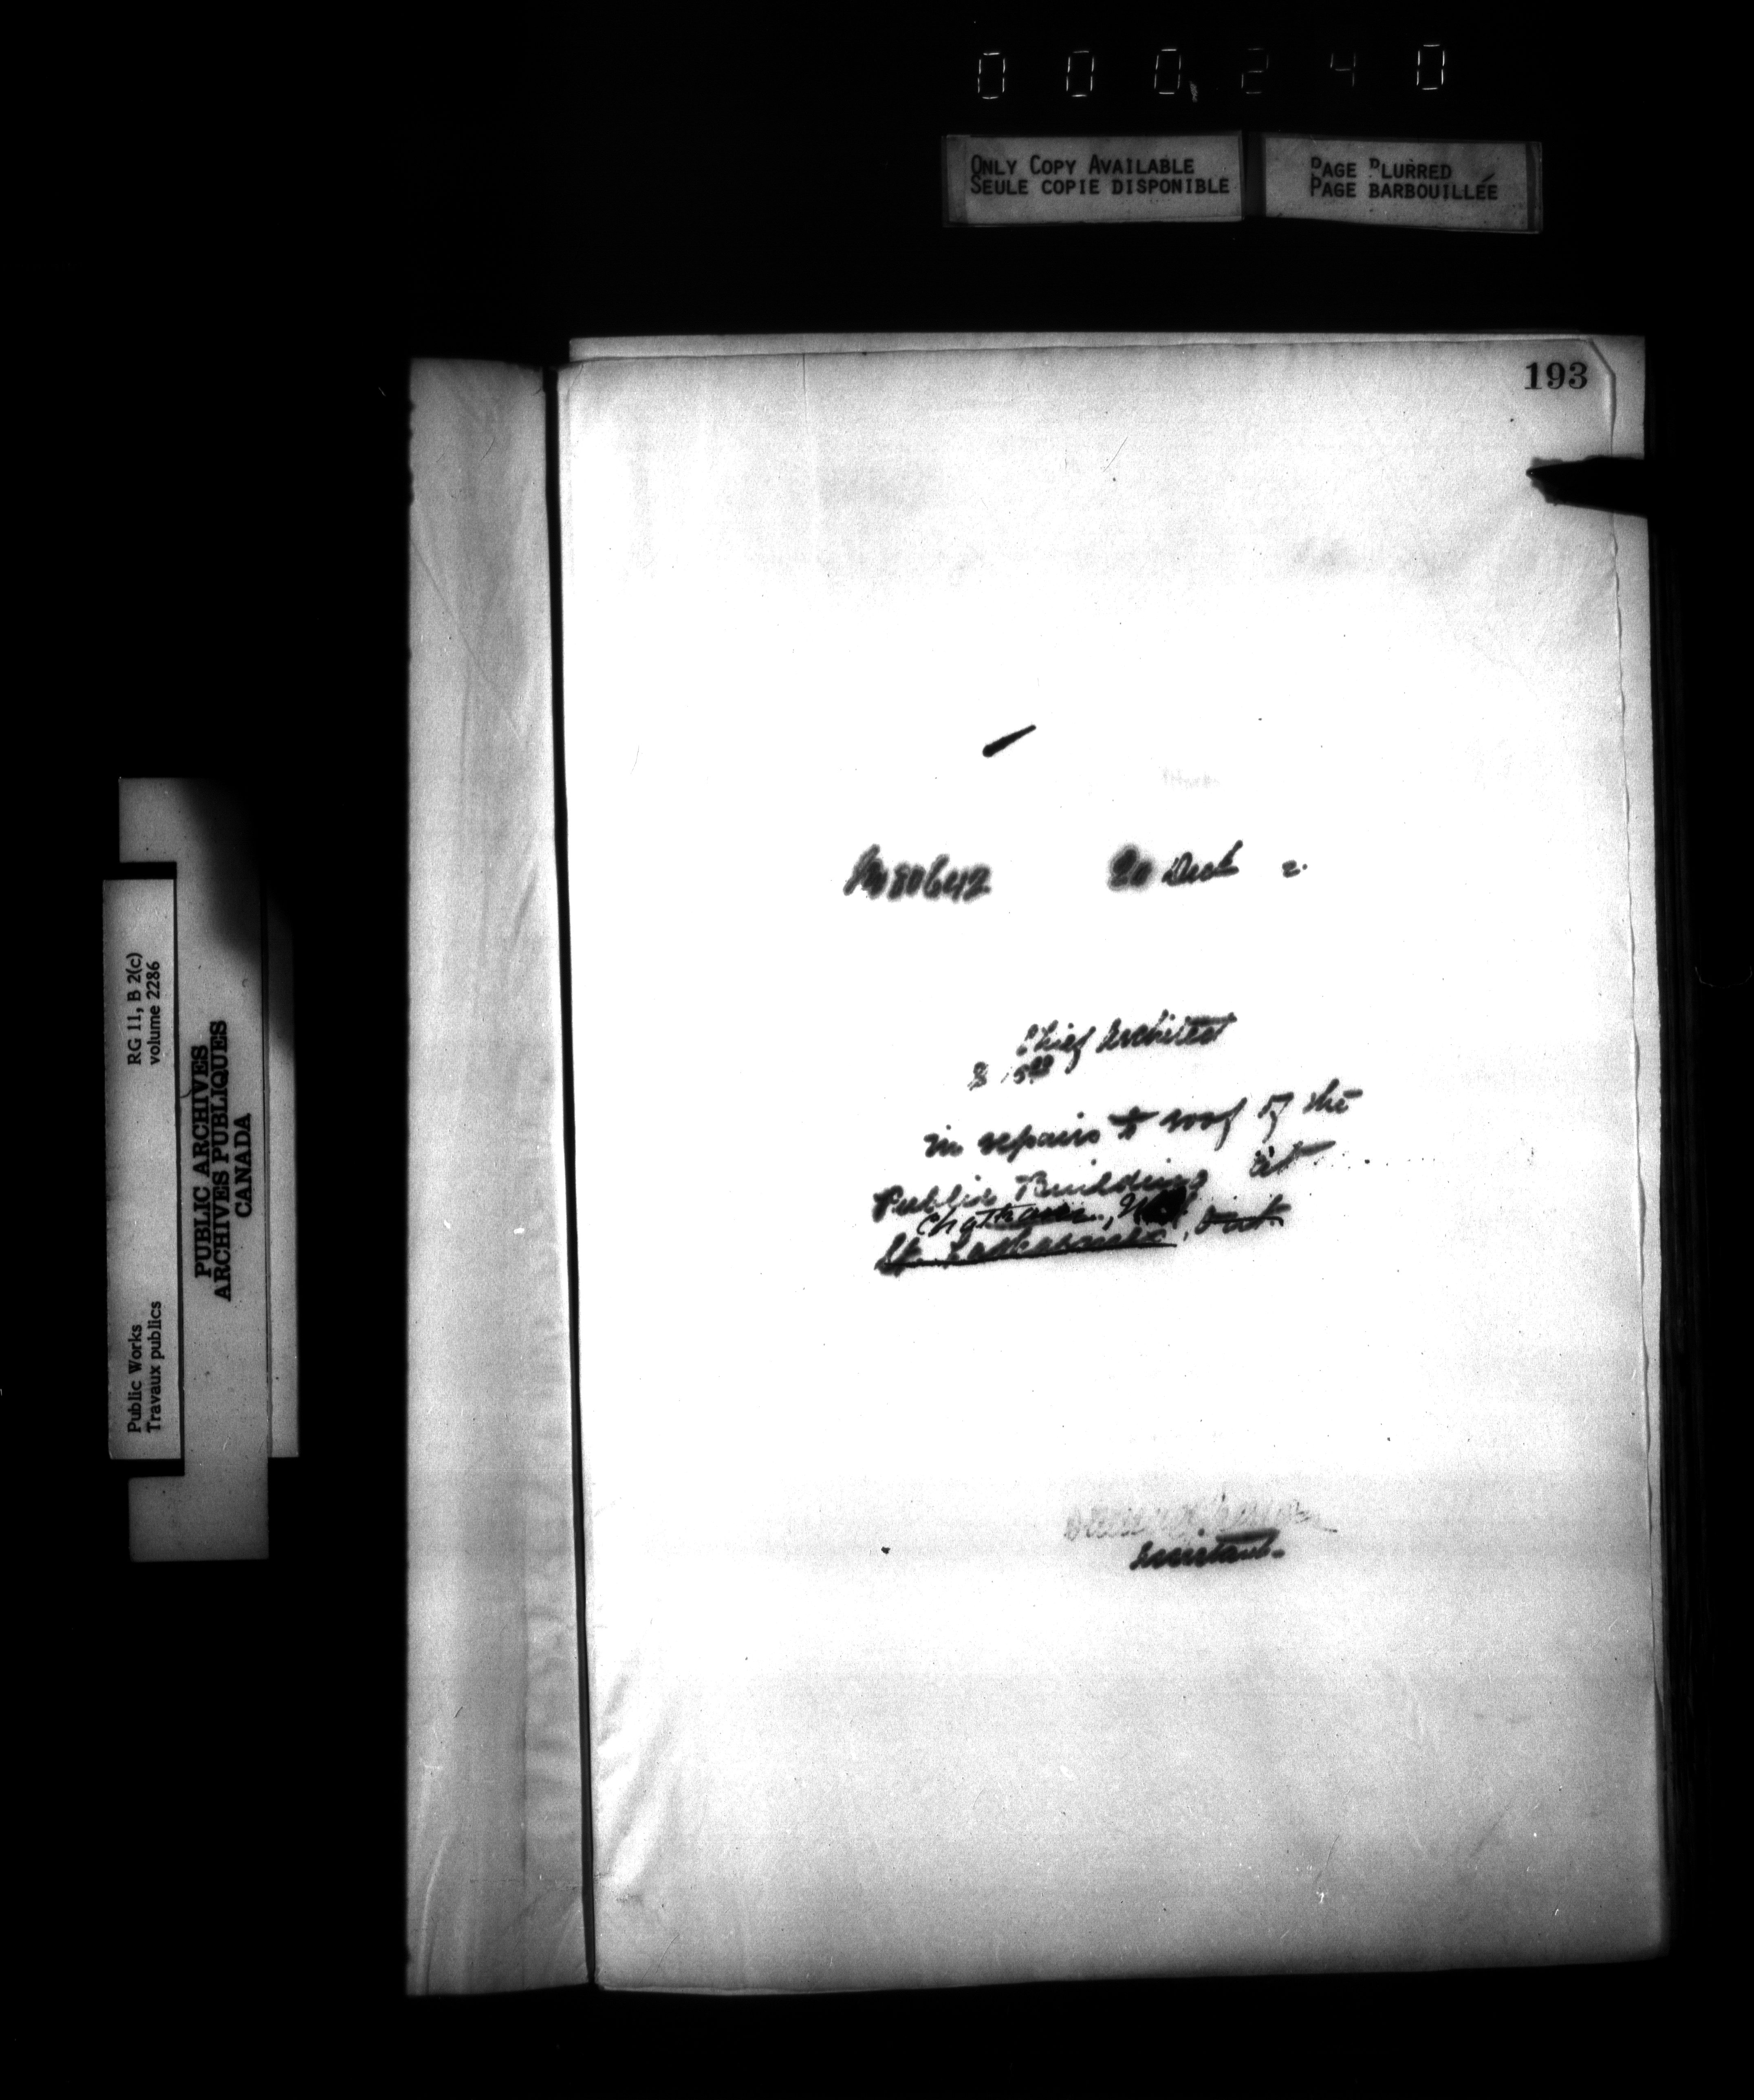 0 0 0 2 4 0
ONLY COPY AVAILABLE
SEULE COPIE DISPONIBLE
PAGE BLURRED
PAGE BARBOUILLÉE
193
80642 20 Dect 2.
Chief Architect
in repairs to roof of the
Public Building at
Chatham,
St. Catharines, Ont
Assistant.
RG 11, B 2(c)
volume 2286
Public Works
Travaux publics
PUBLIC ARCHIVES
ARCHIVES PUBLIQUES
CANADA